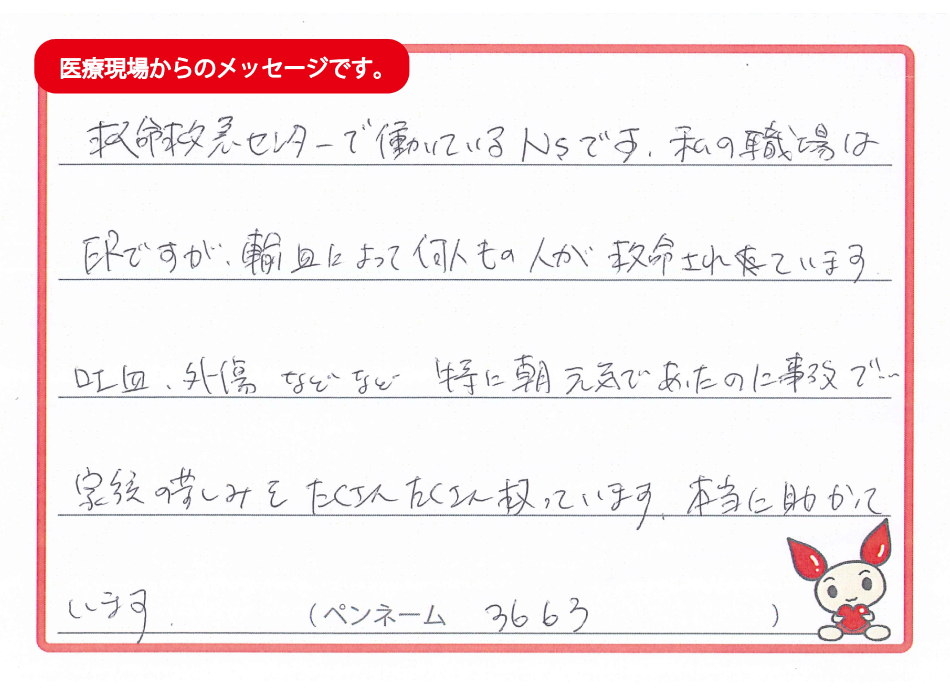 医療現場からのメッセージです。
救命救急センターで働いているNsです。私の職場は
ERですが、輸血によって何人もの人が救命され来ています
吐血、外傷などなど 特に朝元気であったのに事故で…
家族の苦しみをたくさんたくさん扱っています。本当に助かって
います。 (ペンネーム 3663 )